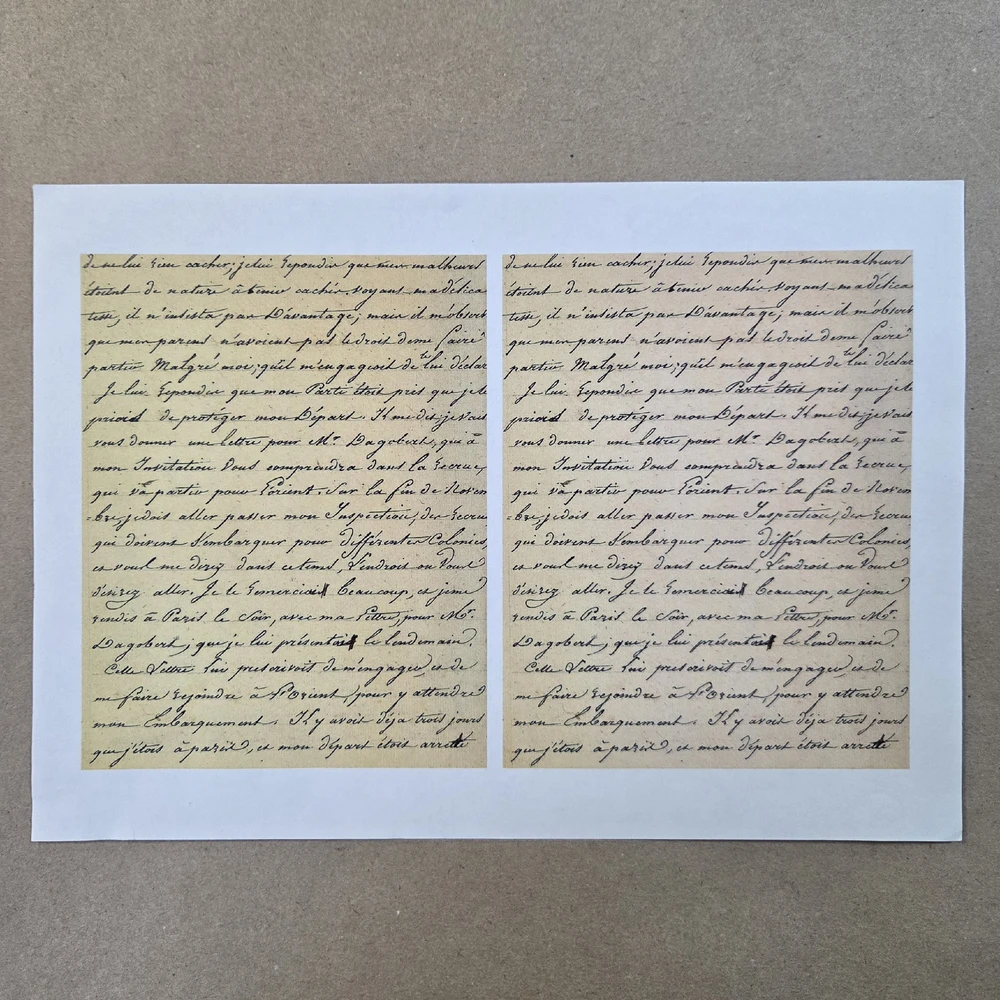 de ne lui rien cacher; je lui repondis que mes malheurs
étoient de nature à tenir cachés. voyant ma délica
tesse, il n'insista pas d'avantage; mais il m'observ
que mes parens n'avoient pas le droit de me faire
partir Malgré moi; qu'il m'engageoit de lui déclar
Je lui repondis que mon Parti étoit pris que je le
priois de proteger mon Départ. Il me dit; je vais
vous donner une lettre pour Mr. Dagobert, qui à
mon Invitation vous comprendra dans la recrue,
qui va partir pour l'orient. Sur la fin de Novem
bre, je dois aller passer mon Inspection, des recrue
qui doivent s'embarquer pour différentes Colonies,
et vous me direz dans ce tems, l'endroit ou vous
désirez aller. Je le remerciai beaucoup, et je me
rendis à Paris le Soir, avec ma Lettre, pour Mr.
Dagobert, que je lui présentai le lendemain.
Cette Lettre lui prescrivoit de m'engager, et de
me faire rejoindre à l'Orient, pour y attendre
mon Embarquement. Il y avoit déja trois jours
que j'étois à paris, et mon départ étoit arretté
de ne lui rien cacher; je lui repondis que mes malheurs
étoient de nature à tenir cachés. voyant ma délica
tesse, il n'insista pas d'avantage; mais il m'observ
que mes parens n'avoient pas le droit de me faire
partir Malgré moi; qu'il m'engageoit de lui déclar
Je lui repondis que mon Parti étoit pris que je le
priois de proteger mon Départ. Il me dit; je vais
vous donner une lettre pour Mr. Dagobert, qui à
mon Invitation vous comprendra dans la recrue,
qui va partir pour l'orient. Sur la fin de Novem
bre, je dois aller passer mon Inspection, des recrue
qui doivent s'embarquer pour différentes Colonies,
et vous me direz dans ce tems, l'endroit ou vous
désirez aller. Je le remerciai beaucoup, et je me
rendis à Paris le Soir, avec ma Lettre, pour Mr.
Dagobert, que je lui présentai le lendemain.
Cette Lettre lui prescrivoit de m'engager, et de
me faire rejoindre à l'Orient, pour y attendre
mon Embarquement. Il y avoit déja trois jours
que j'étois à paris, et mon départ étoit arretté